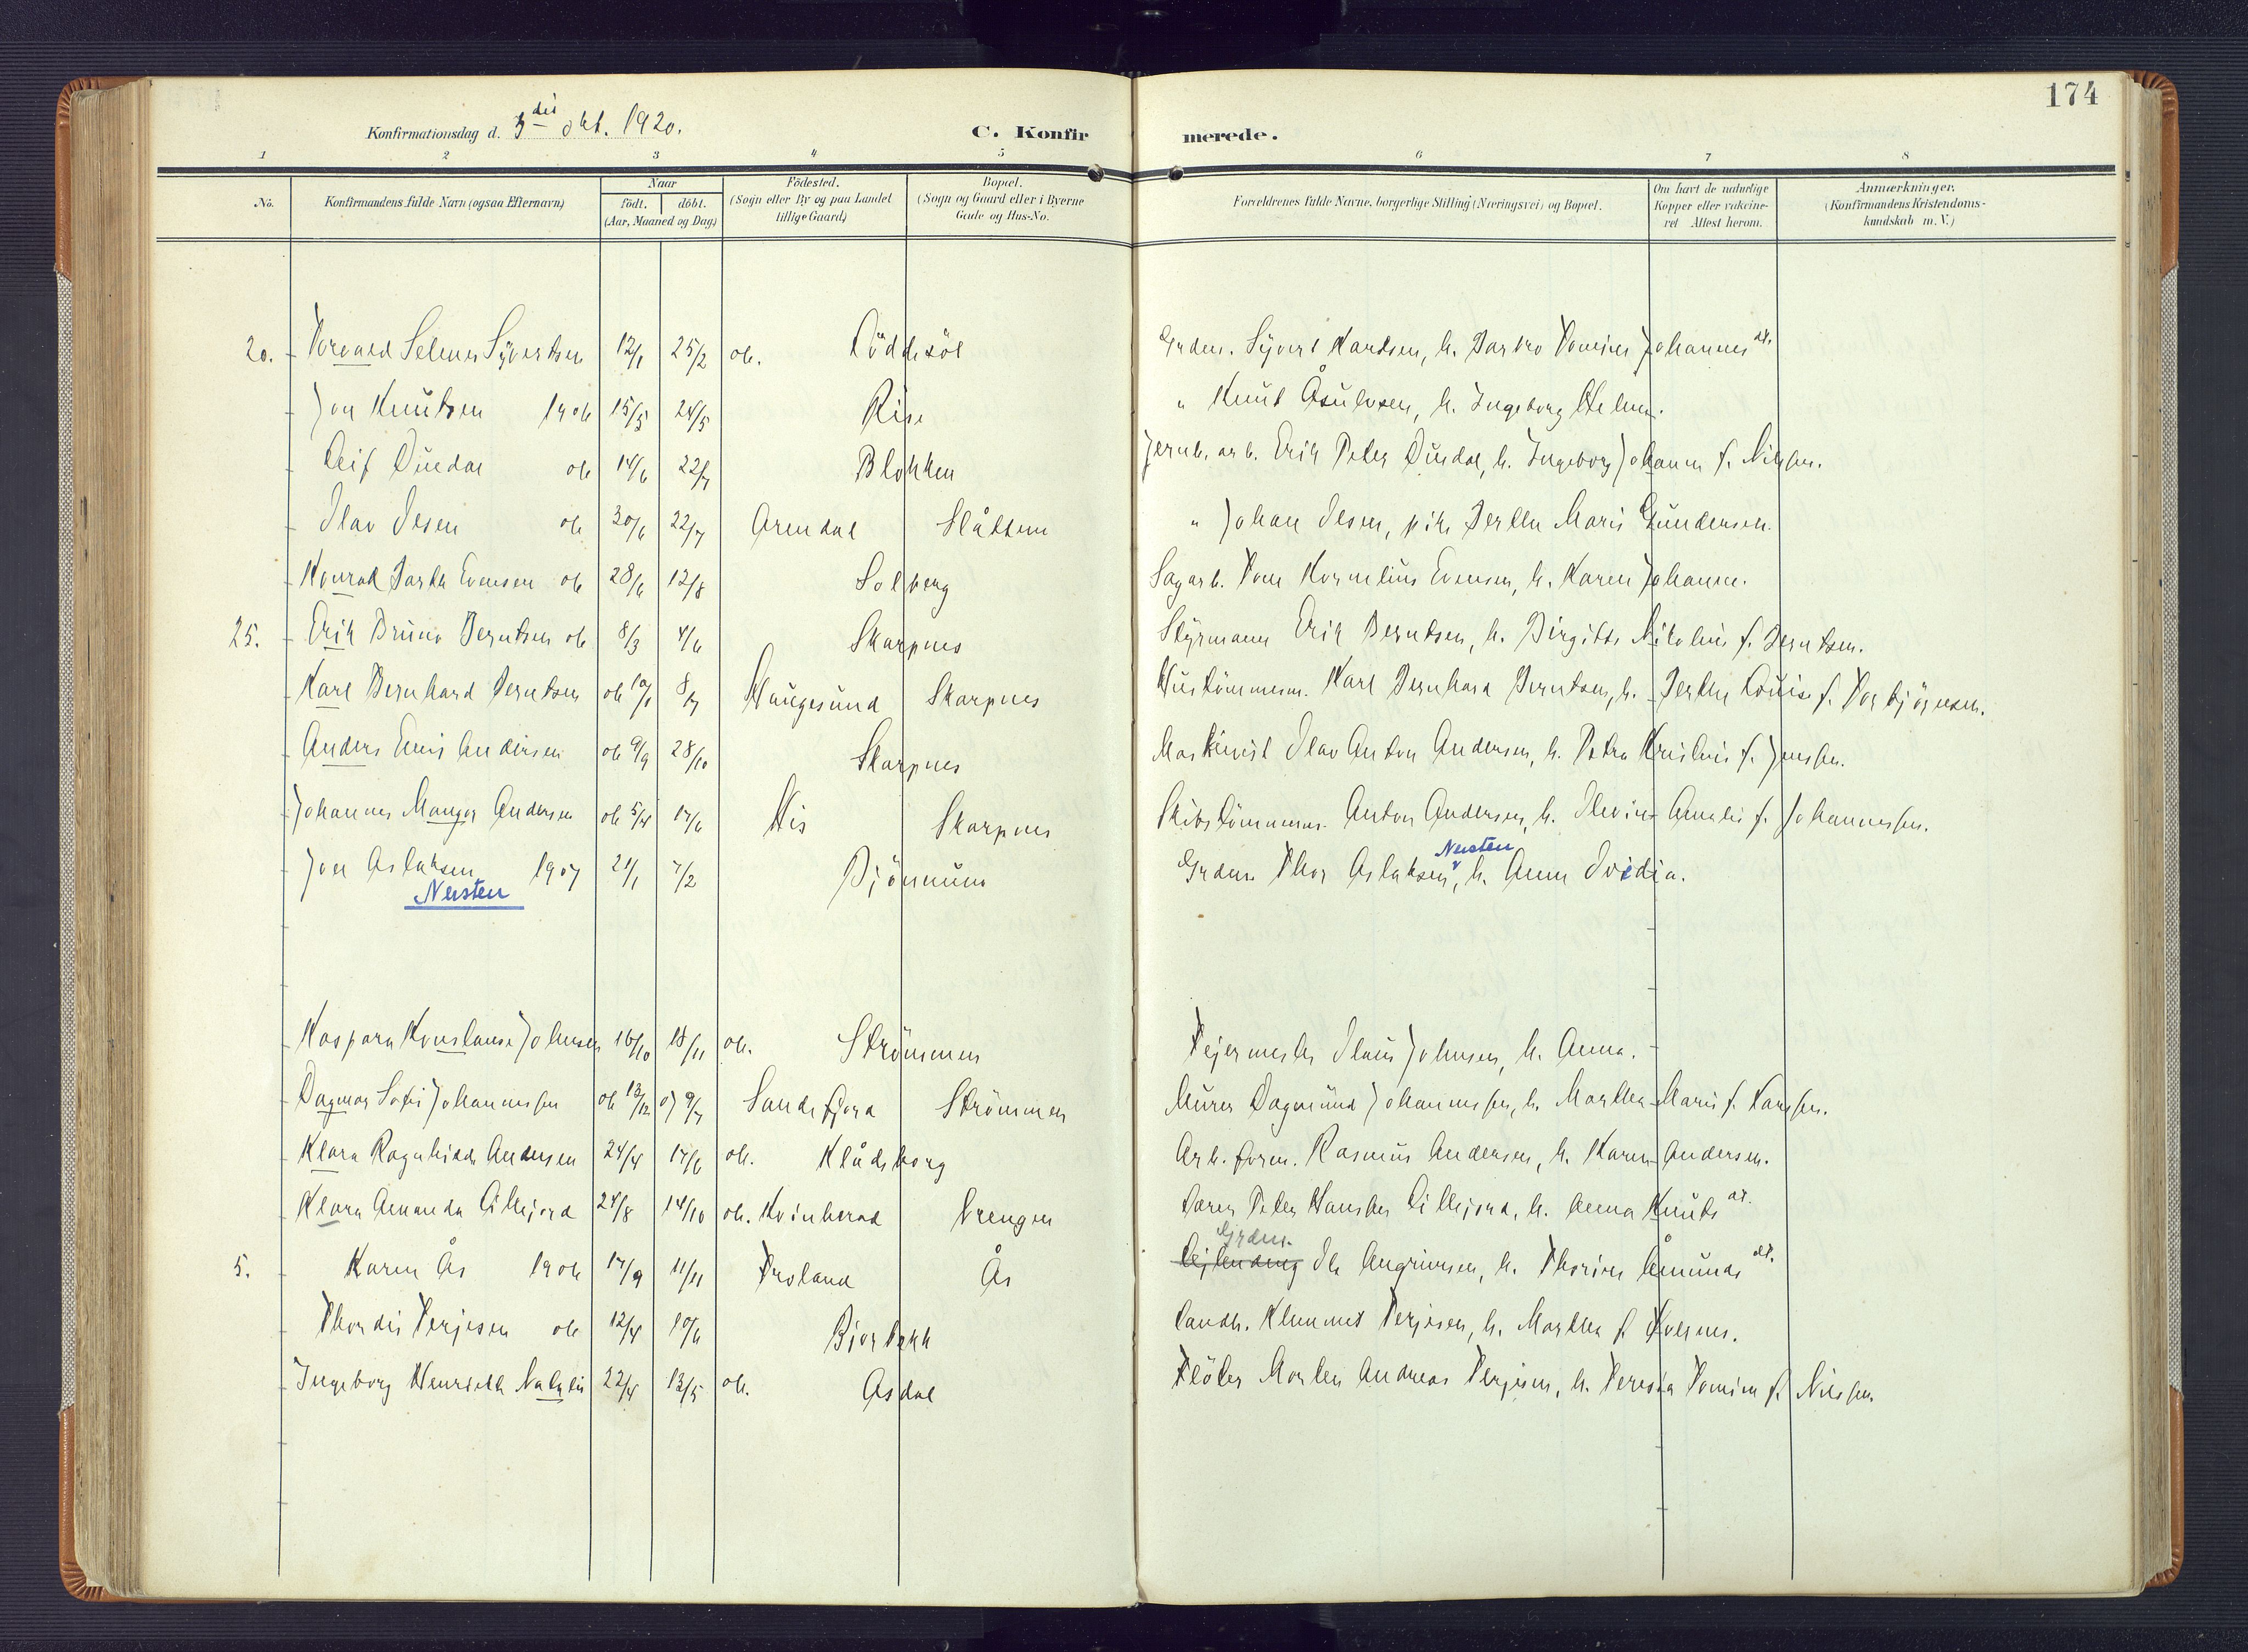 174
Konfirmationsdag d. 3die Okt. 1920.
C. Konfirmerede.
1 2 3 4 5 6 7 8
No. Konfirmandens fulde Navn (ogsaa Efternavn) Naar født. døbt. (Aar, Maaned og Dag) Födested. (Sogn eller By og paa Landet tillige Gaard) Bopæl. (Sogn og Gaard eller i Byerne Gade og Hus-No. Forældrenes fulde Navne, borgerlige Stilling (Næringsvei) og Bopæl. Om havt de naturlige Kopper eller vakcineret Attest herom. Anmærkninger. (Konfirmandens Kristendomskundskab m. V.)
20. Torvald Selmer Syvertsen 12/1 25/2 06. Løddesøl Grdm. Syvert Hansen, h. Johannesdt.
Jon Knutsen 1906 15/3 24/5 Rise " Knut Åsulvsen, h. Ingeborg Helene.
Leif Duedal 06 14/6 22/7 Blokken Jernb. arb. Erik Peter Duedal, h. Ingeborg Johanne f. Nilsen.
Olav Olsen 06 30/6 22/7 Arendal Slåttemo " Johan Olsen, pike Berthe Marie Gundersen.
Konrad Evensen 06 28/6 12/8 Solberg Sagarb. Tom Kornelius Evensen, h. Karen Johanne.
25. Erik Bruno Berntsen 06 8/3 4/6 Skarpnes Styrmann Erik Berntsen, h. Birgitte Nikoline f. Berntsen.
Karl Bernhard Berntsen 06 10/1 8/7 Haugesund Skarpnes Hustömmerm. Karl Bernhard Berntsen, h. Berthe Louise f. Torbjörnsen.
Anders Emil Andersen 06 9/9 28/10 Skarpnes Maskinist Olav Anton Andersen, h. Petra Kristine f. Jensen.
Johannes Manger Andersen 06 5/4 17/6 His Skarpnes Skibstömmerm. Anton Andersen, h. Olevine Amalie f. Johannessen.
Jon Aslaksen 1907 21/1 7/2 Bjönnum Grdm. Thor Aslaksen, Nersten h. Anne Ovidia.
Nersten
Kaspara Konstanse Johnsen 16/10 18/11 06. Strømmen Johnsen, h. Anna.
Dagmar Sofie Johannessen 06 13/12 07 9/7 Sandefjord Strömmen Murer Dagmund Johannessen, h. Marthe Marie f. Larsen.
Klara Ragnhilde Andersen 24/4 17/6 06. Klådeborg Arb. form. Rasmus Andersen, h. Karen Andersen.
Klara Amanda Lillejord 24/8 14/10 06. Kvinherad Vrengen Lærer Peter Hansen Lillejord, h. Anna Knutsdt.
5. Karen Ås 1906 17/9 11/11 Froland Ås Grdm. Ole Angrimsen, h. Thorine Åmundsdt.
Thordis Terjesen 06 12/4 10/6 Bjorbekk Landh. Klemmet Terjesen, h. Marthe f. Kvernes.
Ingeborg Henriette Natalie 22/4 13/5 06. Asdal Fløter Morten Andreas Terjesen, h. Teresia Tomine f. Nilsen.